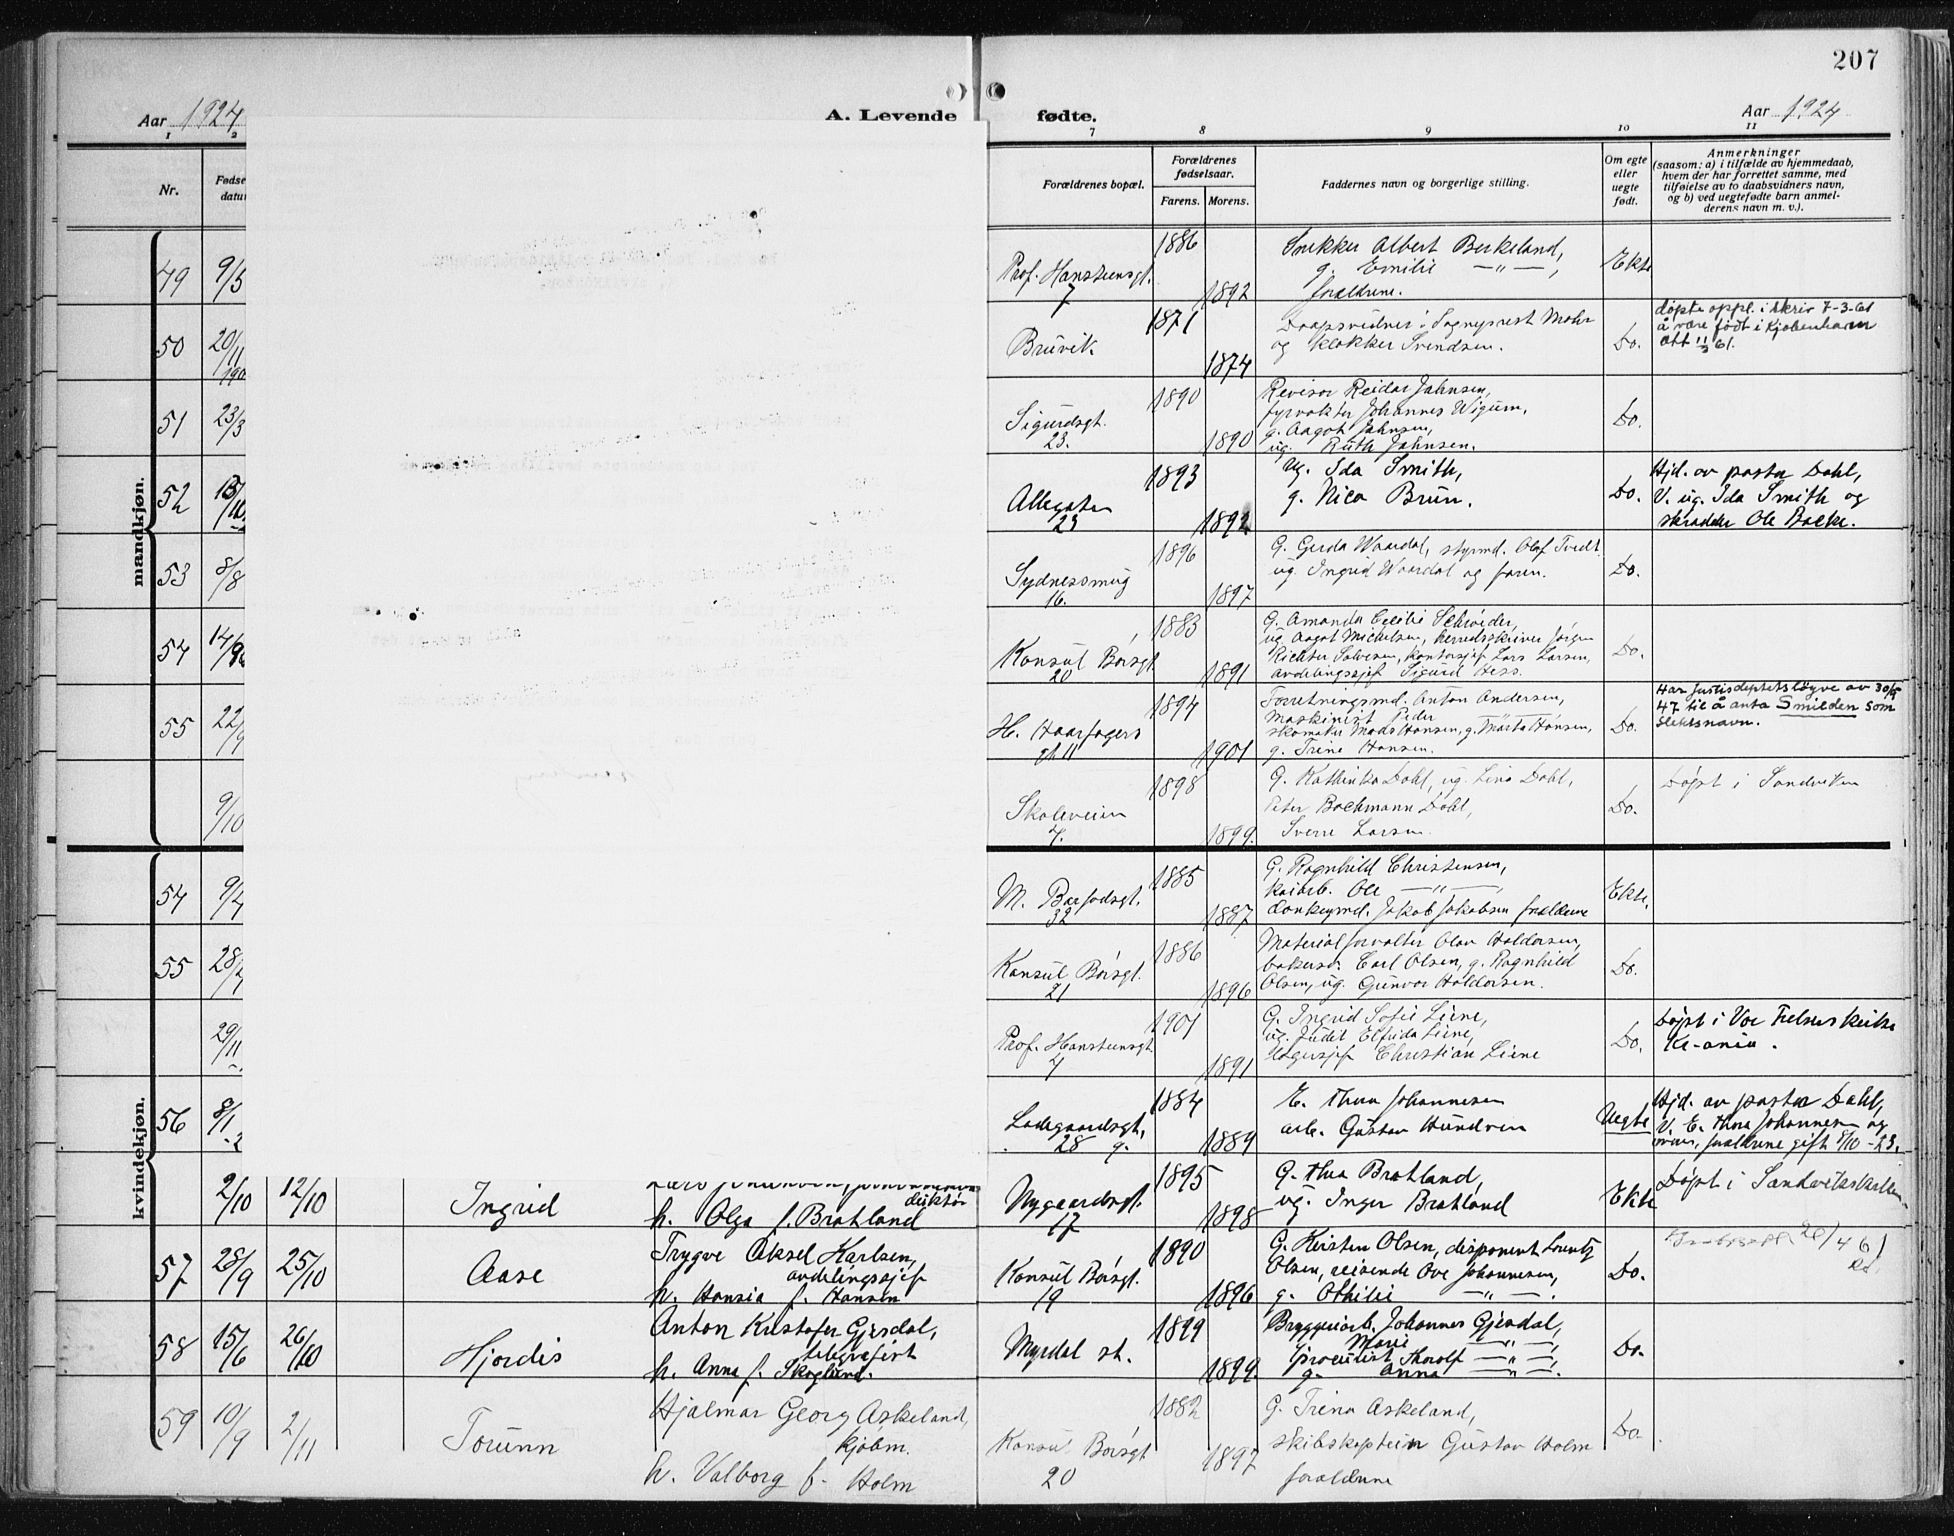 207
Aar 1924
A. Levende fødte.
Aar 1924
1 2 7 8 9 10 11
Nr.
Fødse
datu
Forældrenes bopæl.
Forældrenes
fødselsaar.
Farens. Morens.
Faddernes navn og borgerlige stilling.
Om egte
eller
uegte
født.
Anmerkninger
(saasom: a) i tilfælde av hjemmedaab,
hvem der har forrettet samme, med
tilføielse av to daabsvidners navn,
og b) ved uegtefødte barn anmel-
derens navn m. v.).
mandkjøn.
49 9/5 Prof. Hansteensgt. 7 1886 1892
Snekker Albert Berkeland,
g. Emilie — " —,
foraldrene.
Ekte
50 20/11 190 Bruvik 1871 1874
Daapsvidner: Sogneprest Mohr
og klokker Svendsen.
Do.
døpte oppl. i skriv 7-3-61
å være født i Kjøbenhavn
Att 11/3 61.
51 23/3 Sigurdsgt. 23. 1890 1890
Revisor Reidar Jahnsen,
fyrvokter Johannes Wigum,
g. Aagot Jahnsen,
ug. Ruth Jahnsen.
Do.
52 Allegaten 23 1893 1892
Ug. Ida Smith,
g. Nica Brun.
Do.
Hjd. av pastor Dahl,
V. ug. Ida Smith og
skrædder Ole Backe.
53 8/8 Sydnessmug 16. 1896 1897
G. Gerda Waardal, styrmd. Olaf Tvedt
ug. Ingrid Waardal og faren.
Do.
54 14/9 Konsul Børsgt 20 1883 1891
G. Amanda Cecilie Schrøider,
ug. Aagot Michelsen, herredsskriver Jørgen
Richter Salvesen, kontorsjef Lars Larsen,
avdelingssjef Sigurd Hess.
Do.
55 22/9 H. Haarfagers gt. 11 1894 1901
Forretningsmd. Anton Andersen,
maskinist Peder
skomaker Mads Hansen, g. Marta Hansen,
g. Trine Hansen.
Do.
Har justisdeptets løyve av 30/5
47 til å anta Smilden som
slektsnavn.
9/10 Skoleveien 7. 1898 1899.
G. Kathinka Dahl, ug. Lina Dahl,
Peter Bachmann Dahl,
Sverre Larsen.
Do.
Døpt i Sandviken
kvindekjøn.
54 9/4 M. Barfodsgt. 32 1885 1887
G. Ragnhild Christensen,
kaiarb. Ole — " —,
donkeymd. Jakob Jakobsen foraldrene
Ekte.
55 28/ Konsul Børsgt. 21 1886 1896
Materialforvalter Olav Haldorsen,
bakersv. Carl Olsen, g. Ragnhild
Olsen, ug. Gunvor Haldorsen.
Do.
29/11 Prof. Hansteensgt. 7 1901 1891
G. Ingrid Sofie Liene,
ug. Judit Elfrida Liene,
lagersjef Christian Liene
Do.
Døpt i Vor Frelsers kirke
Kr-ania.
56 8/1 Ladegaardsgt. 28 1884 1884
E. Thea Johannesen
arb. Gustav Hundven
Uegte
Hjd. av pastor Dahl,
V. E. Thea Johannesen og
foraldrene gift 8/10 - 23.
2/10 12/10 Ingrid
direktør
h. Olga f. Bratland
Nygaardsgt. 17 1895 1898
G. Thea Bratland,
ug. Inger Bratland
Ekte
Døpt i Sandvikskirken
57 28/9 25/10 Aase
Trygve Aksel Karlsen,
avdelingssjef
h. Hansia f. Hansen
Konsul Børsgt. 19 1890 1896
G. Kirsten Olsen, disponent Lorentz
Olsen, reisende Ove Johannesen,
g. Othilie — " —.
Do.
26/4 61
58 15/6 26/10 Hjordis
Anton Kristofer Gjesdal,
telegrafist
h. Anna f. Skoglund.
Myrdal st. 1899 1899.
Bryggeriarb. Johannes Gjesdal,
Marie — " —,
procurist Thorolf — " —,
g. Anna — " —.
Do.
59 10/9 2/11 Torunn
Hjalmar Georg Askeland,
kjøbm.
h. Valborg f. Holm
Konsul Børsgt 20 1882 1897
G. Trina Askeland,
skibskaptein Gustav Holm
foraldrene
Do